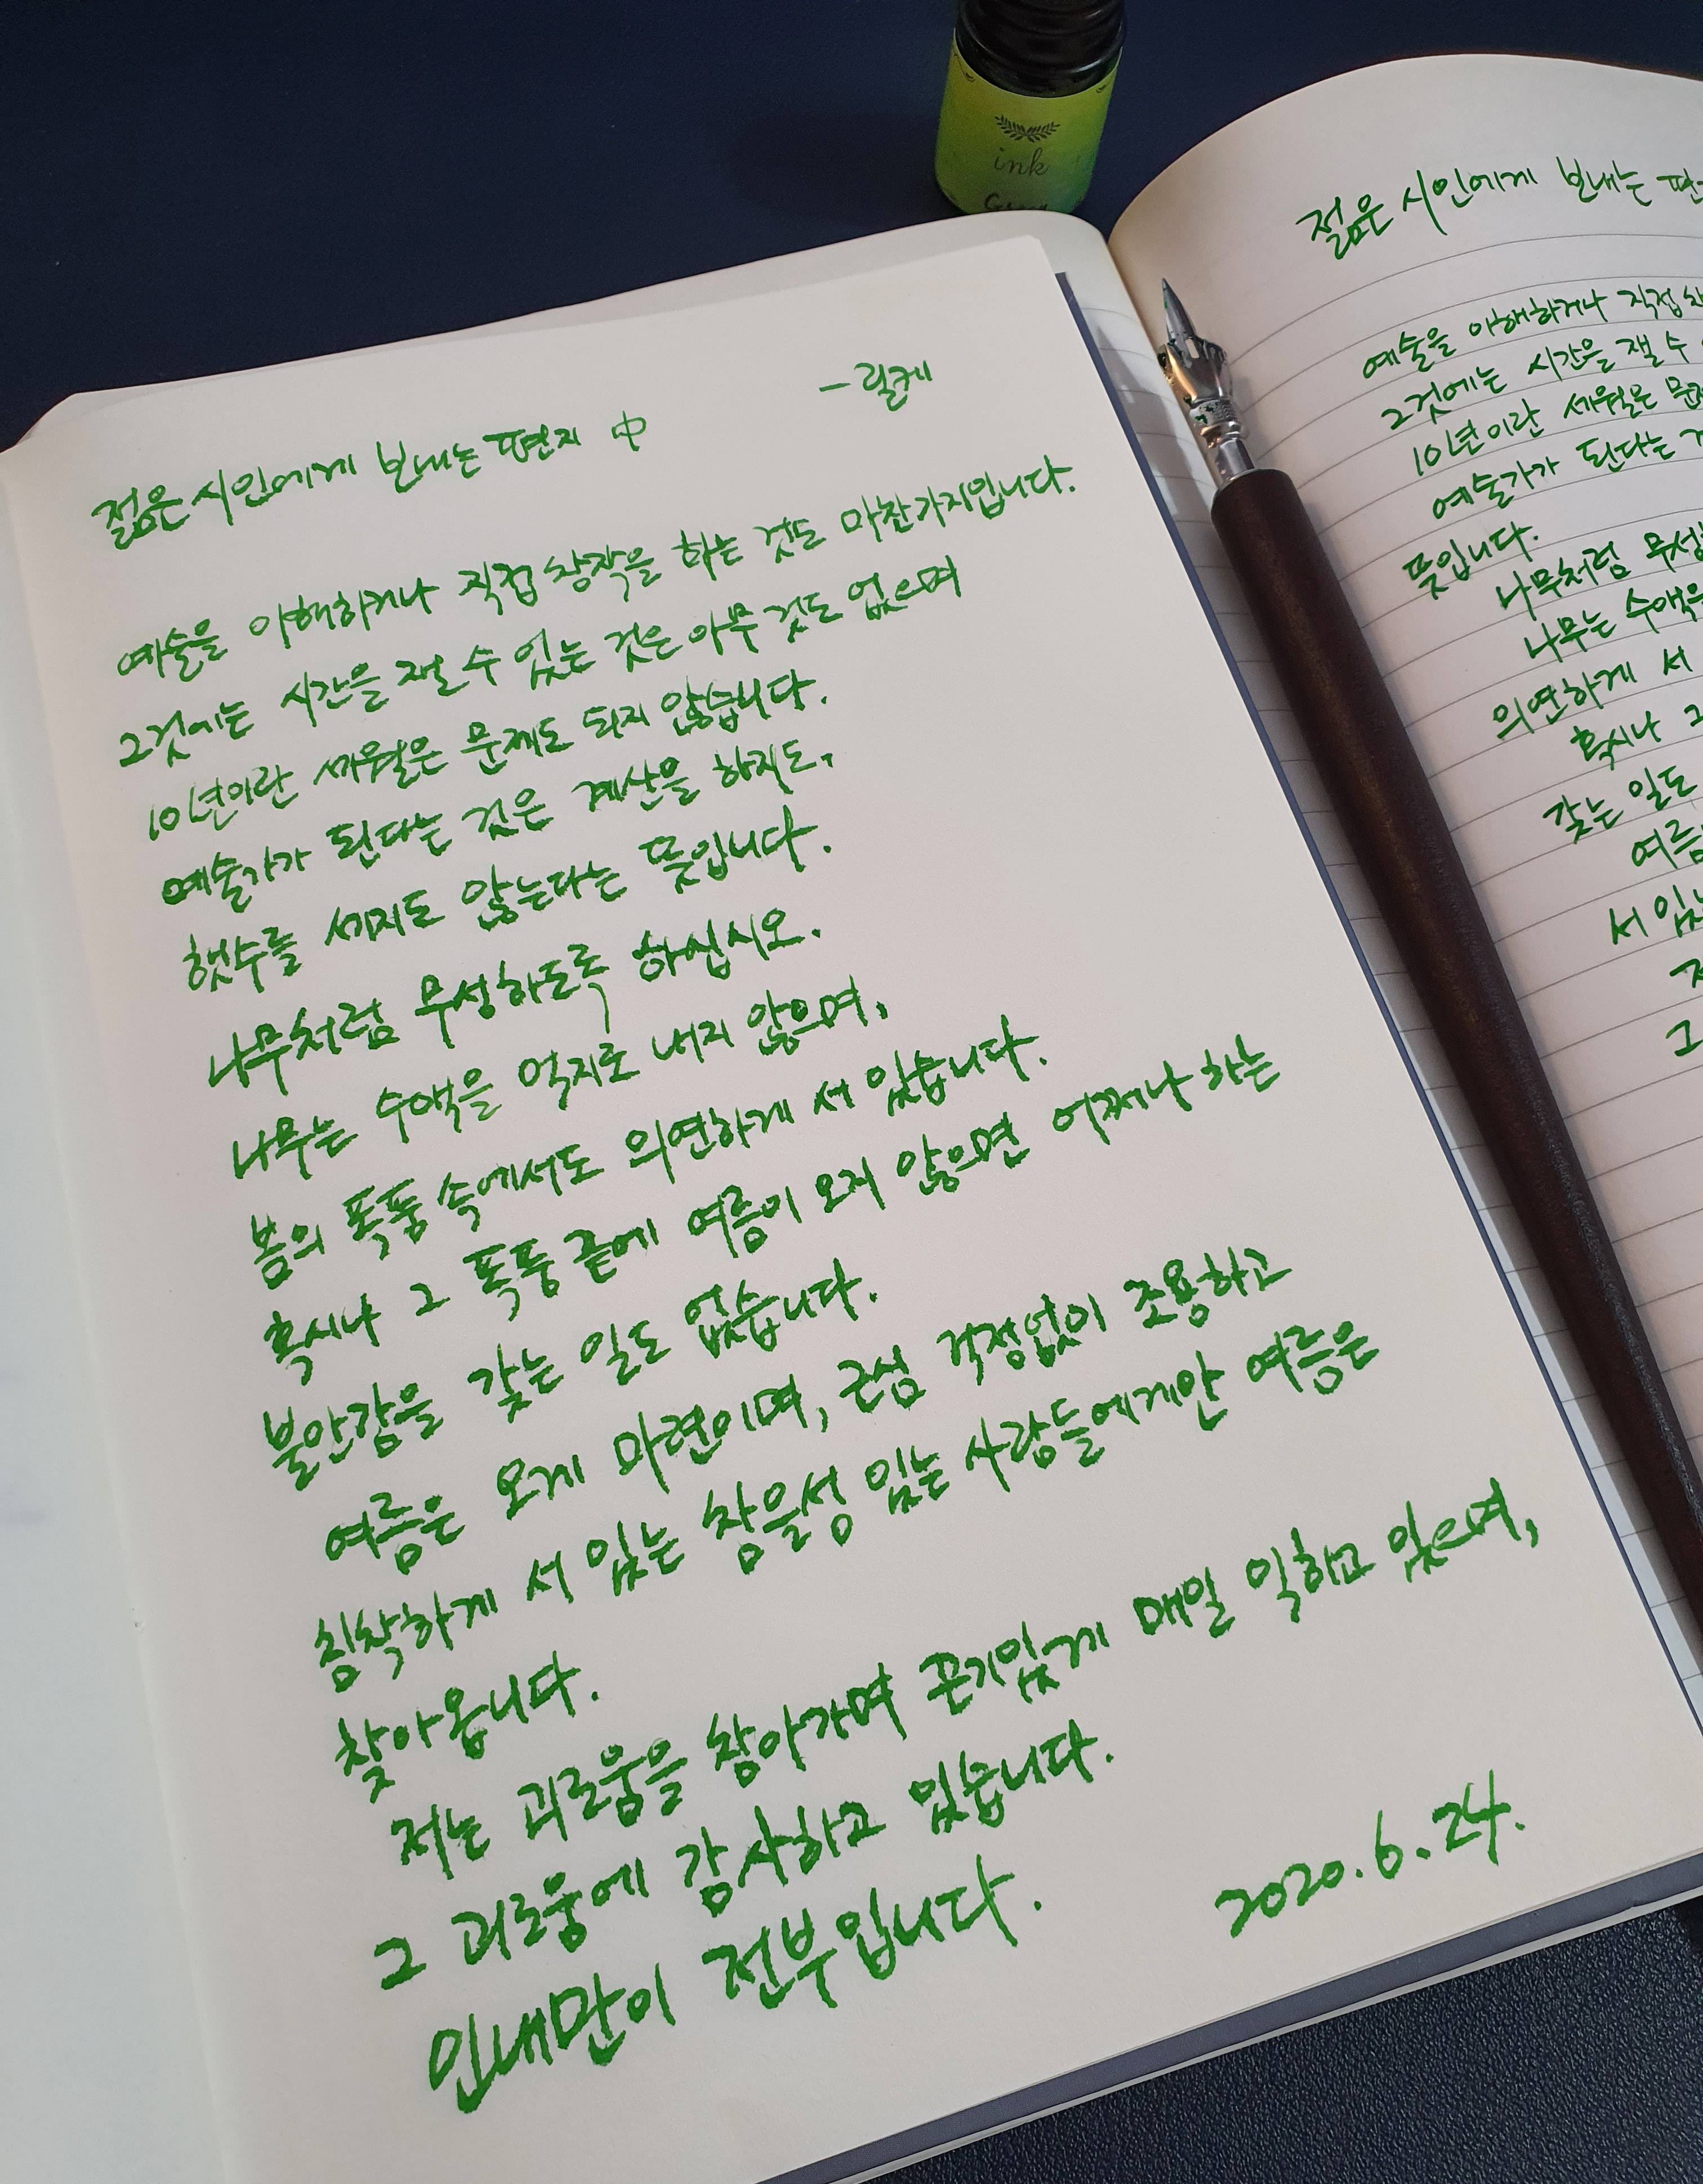 ink
젊은 시인에게 보내는 편지 中
- 릴케
예술을 이해하거나 직접 창작을 하는 것도 마찬가지입니다.
그것에는 시간을 잴 수 있는 것은 아무 것도 없으며
10년이란 세월은 문제도 되지 않습니다.
예술가가 된다는 것은 계산을 하지도,
햇수를 세지도 않는다는 뜻입니다.
나무처럼 무성하도록 하십시오.
나무는 수액을 억지로 내지 않으며,
봄의 폭풍 속에서도 의연하게 서 있습니다.
혹시나 그 폭풍 끝에 여름이 오지 않으면 어쩌나 하는
불안감을 갖는 일도 없습니다.
여름은 오게 마련이며, 근심 걱정없이 조용하고
침착하게 서 있는 참을성 있는 사람들에게만 여름은
찾아옵니다.
저는 괴로움을 참아가며 끈기있게 매일 익히고 있으며,
그 괴로움에 감사하고 있습니다.
인내만이 전부입니다.
2020.6.24.
젊은 시인에게 보내는
예술을 이해하거나 직접
그것에는 시간을 잴 수
10년이란 세월은
예술가가 된다는
뜻입니다.
나무처럼
나무는 수액을
의연하게 서
혹시나
갖는 일도
서 있는